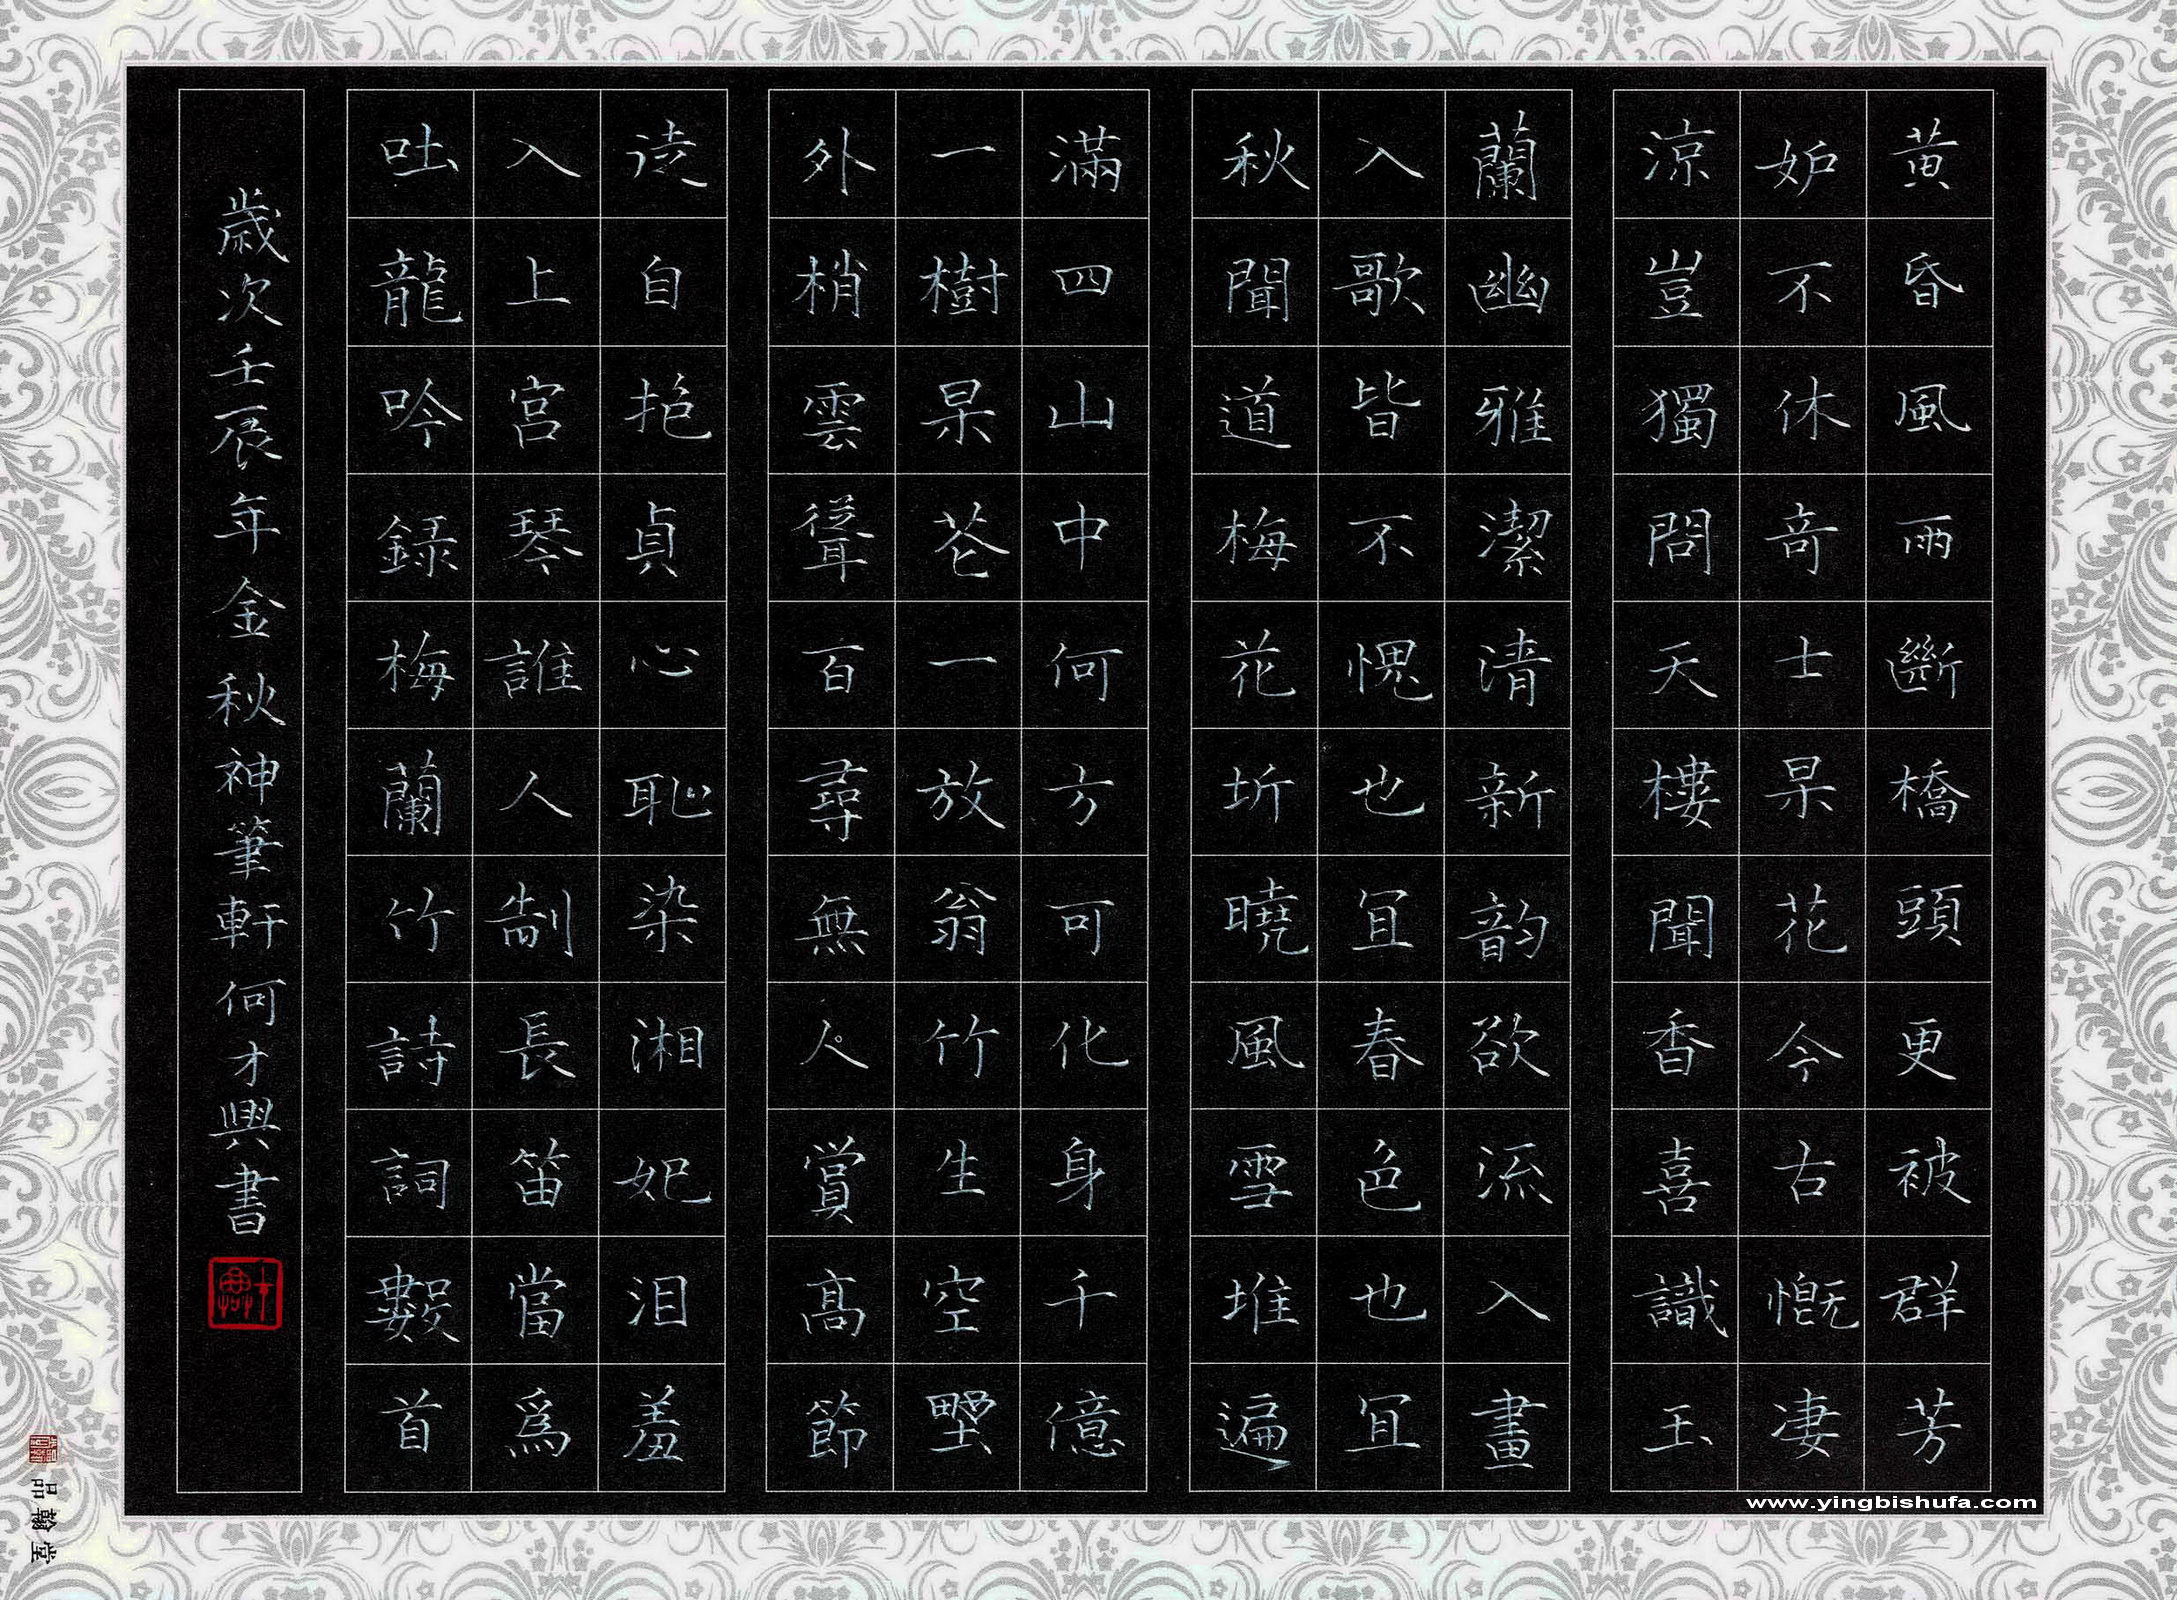 黄昏風雨斷橋頭更被群芳
妒不休奇士杲花今古慨凄
涼豈獨問天樓聞香喜識玉
蘭幽雅潔清新韵欲流入畫
入歌皆不愧也宜春色也宜
秋聞道梅花坼曉風雪堆遍
滿四山中何方可化身千億
一樹杲芲一放翁竹生空壄
外梢雲聳百尋無人賞高節
徒自抱貞心恥染湘妃泪羞
入上宮琴誰人制長笛當爲
吐龍吟録梅蘭竹詩詞數首
歲次壬辰年金秋神筆軒何才興書
品翰堂
www.yingbishufa.com